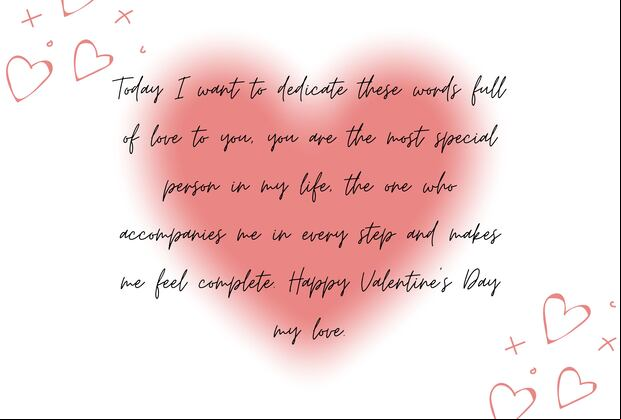 Today I want to dedicate these words full
of love to you, you are the most special
person in my life, the one who
accompanies me in every step and makes
me feel complete. Happy Valentine's Day
my love.